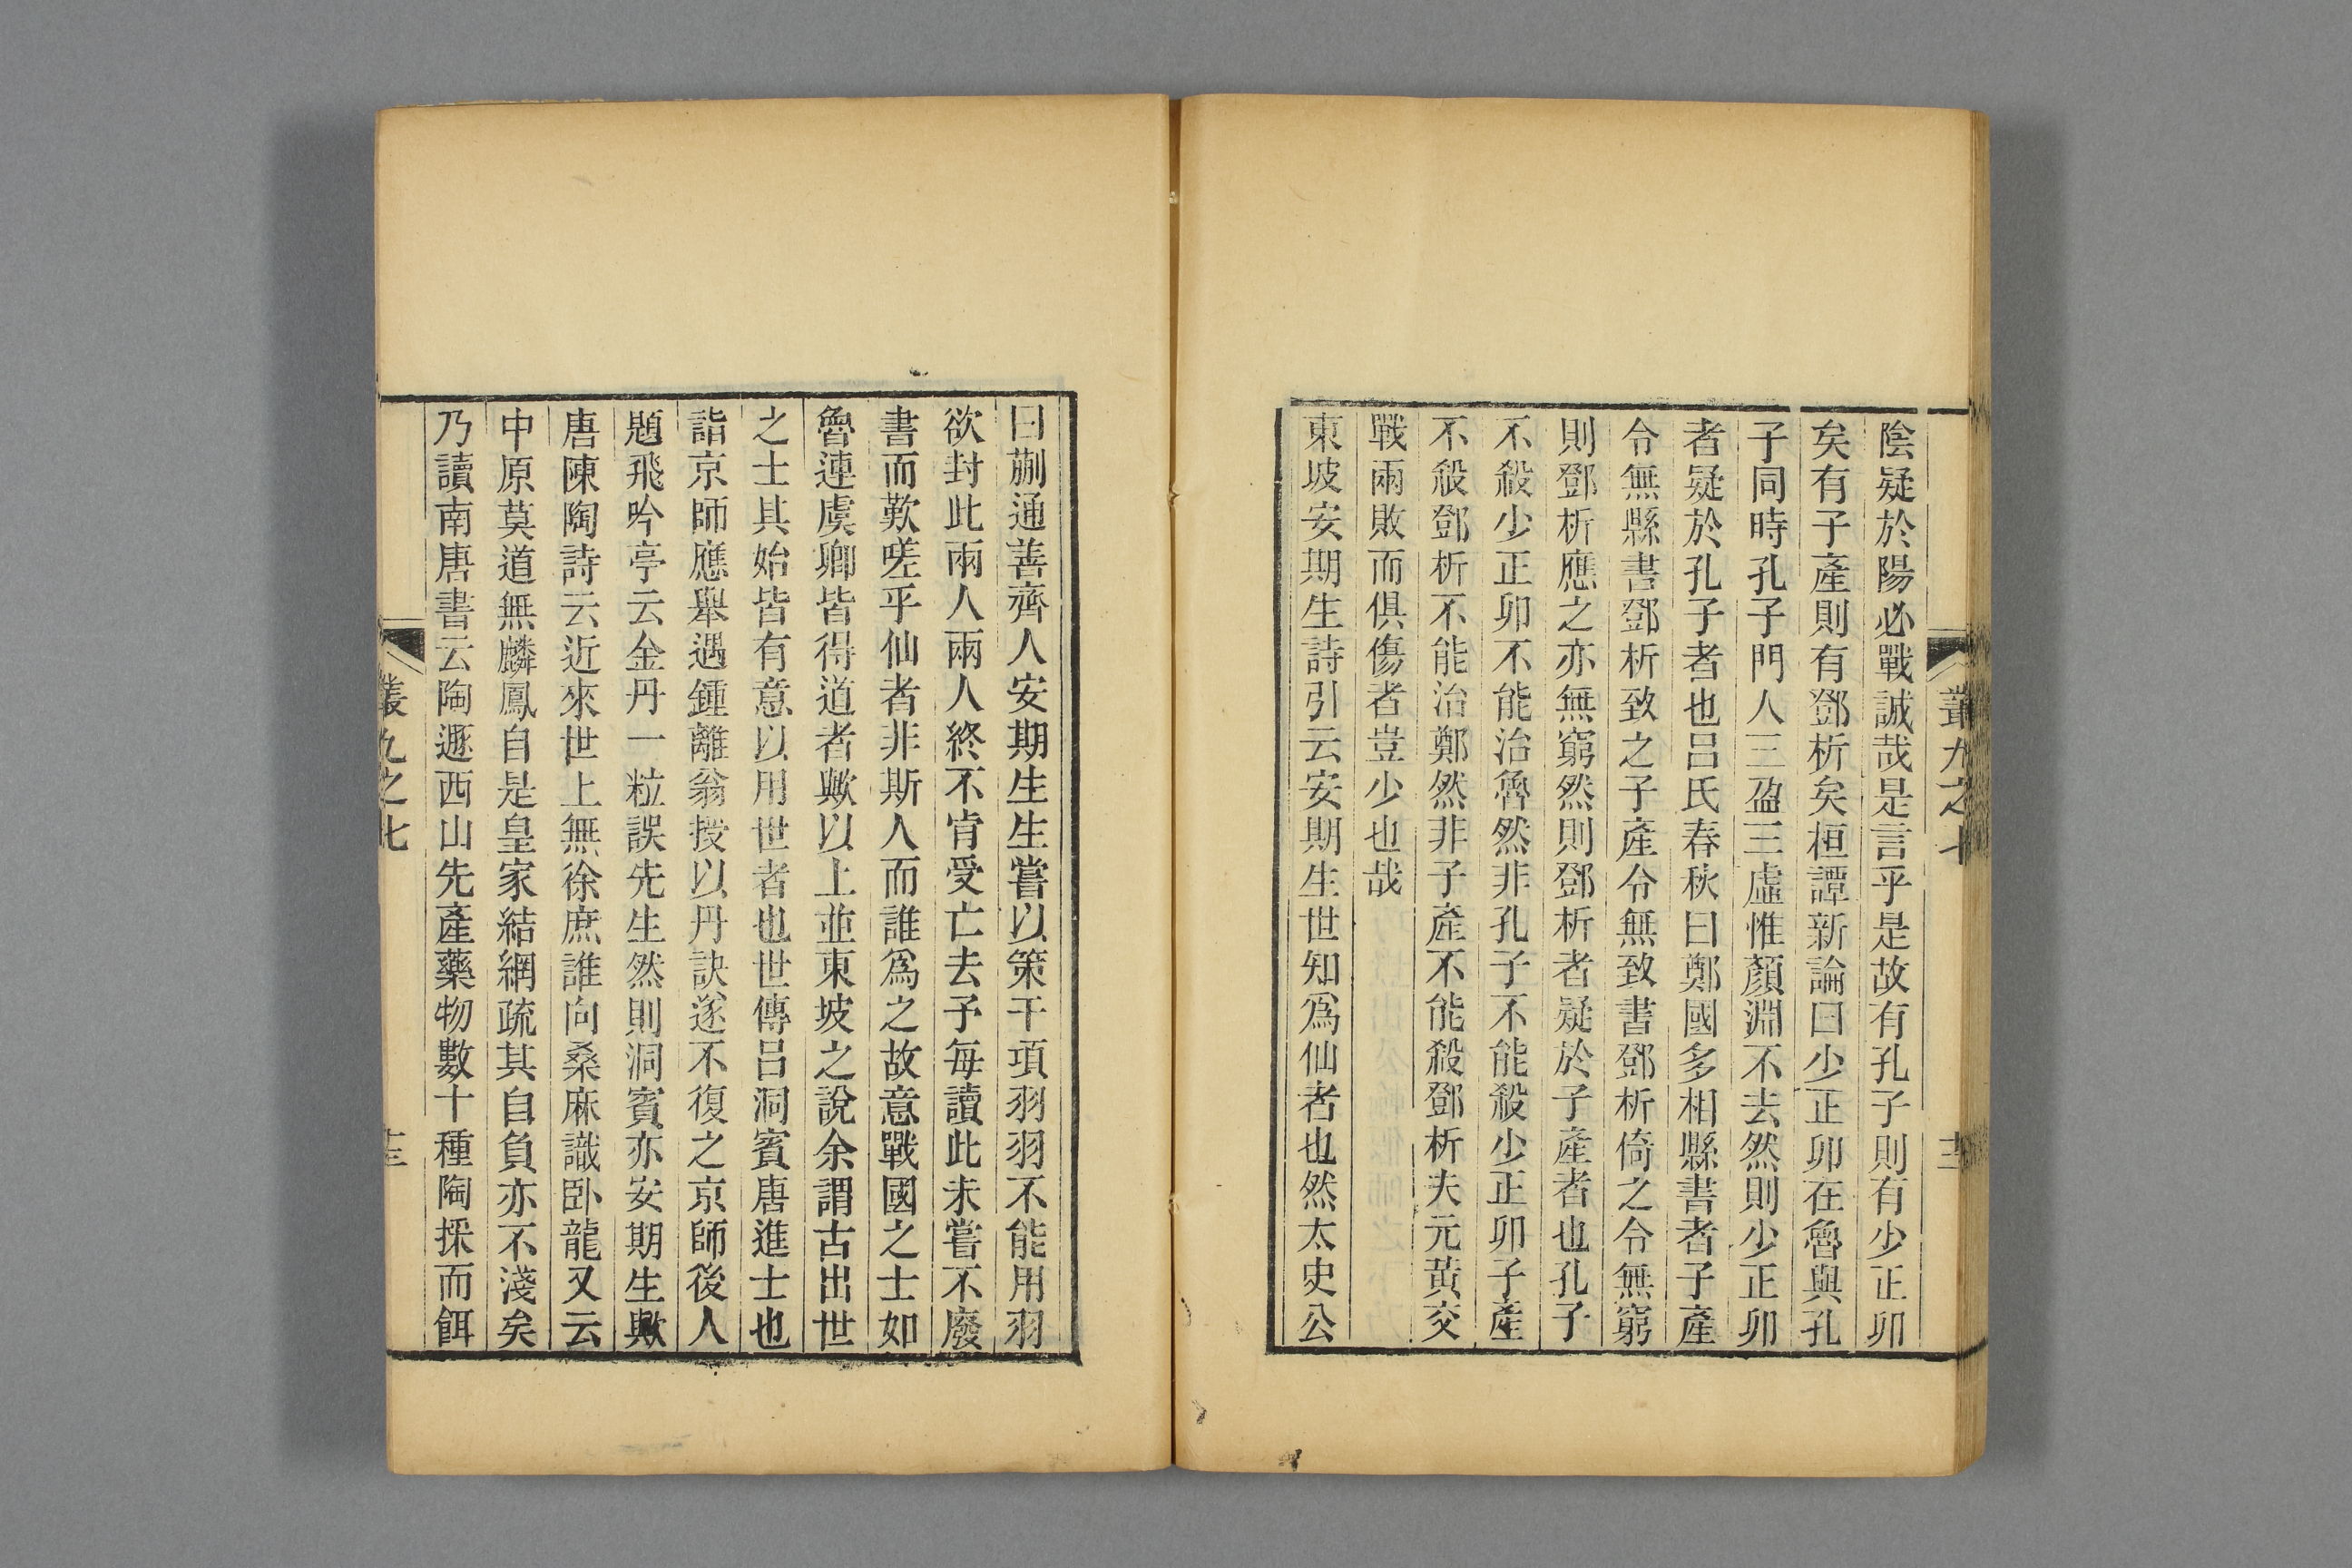 陰疑於陽必戰誠哉是言乎是故有孔子則有少正卯
矣有子產則有鄧析矣桓譚新論曰少正卯在魯與孔
子同時孔子門人三盈三虛惟顏淵不去然則少正卯
者疑於孔子者也呂氏春秋曰鄭國多相縣書者子產
令無縣書鄧析致之子產令無致書鄧析倚之令無窮
則鄧析應之亦無窮然則鄧析者疑於子產者也孔子
不殺少正卯不能治魯然非孔子不能殺少正卯子產
不殺鄧析不能治鄭然非子產不能殺鄧析夫元黃交
戰兩敗而俱傷者豈少也哉
東坡安期生詩引云安期生世知爲仙者也然太史公
曰蒯通善齊人安期生生嘗以策干項羽羽不能用羽
欲封此兩人兩人終不肯受亡去予每讀此未嘗不廢
書而歎嗟乎仙者非斯人而誰爲之故意戰國之士如
魯連虞卿皆得道者歟以上並東坡之說余謂古出世
之士其始皆有意以用世者也世傳呂洞賓唐進士也
詣京師應舉遇鍾離翁授以丹訣遂不復之京師後人
題飛吟亭云金丹一粒誤先生然則洞賓亦安期生歟
唐陳陶詩云近來世上無徐庶誰向桑麻識臥龍又云
中原莫道無麟鳳自是皇家結網疏其自負亦不淺矣
乃讀南唐書云陶遯西山先產藥物數十種陶採而餌
叢九之七
十三